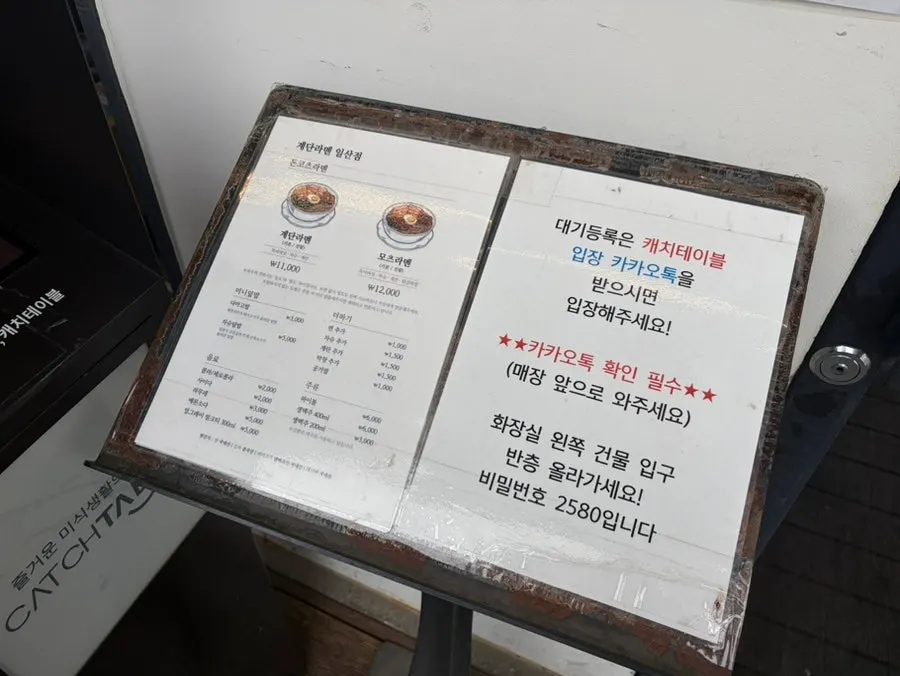 제단라멘 일산점
돈코츠라멘
제단라멘
₩11,000
모츠라멘
₩12,000
미니덮밥
₩3,000
차슈덮밥
₩5,000
더하기
면 추가
₩1,000
차슈 추가
₩1,500
계란 추가
₩1,500
₩1,500
공기밥
₩1,000
음료
콜라/제로콜라
₩2,000
사이다
₩2,000
₩3,000
₩3,000
₩3,000
주류
하이볼
₩6,000
생맥주 400ml
₩6,000
생맥주 200ml
₩3,000
대기등록은 캐치테이블
입장 카카오톡을
받으시면
입장해주세요!
★★카카오톡 확인 필수★★
(매장 앞으로 와주세요)
화장실 왼쪽 건물 입구
반층 올라가세요!
비밀번호 2580입니다
캐치테이블
즐거운 미식생활의
CATCHTAB